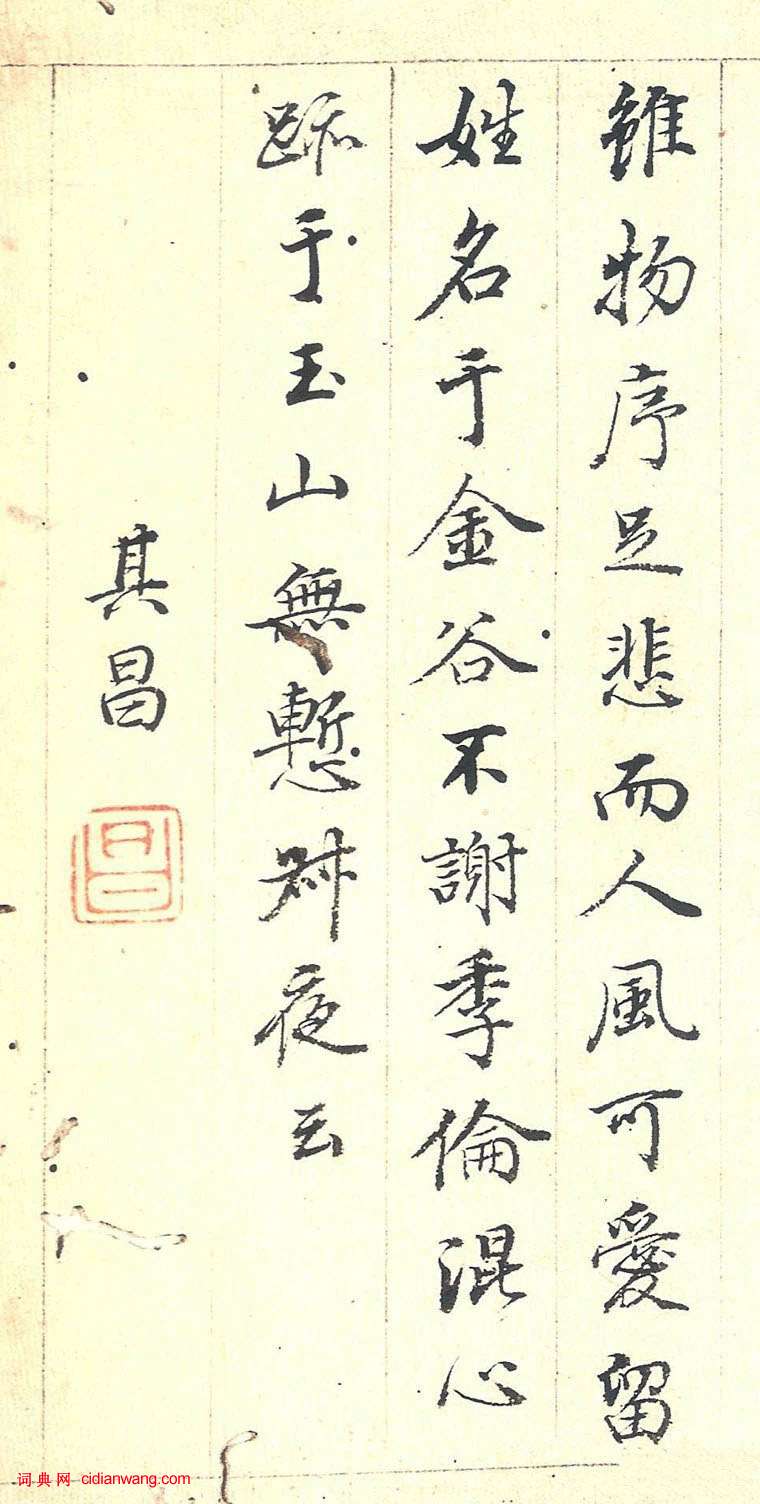 雖物序足悲而人風可愛留
姓名于金谷不謝季倫混心
跡于玉山無慙叔夜云
其昌
昌
词典网 cidianwang.com